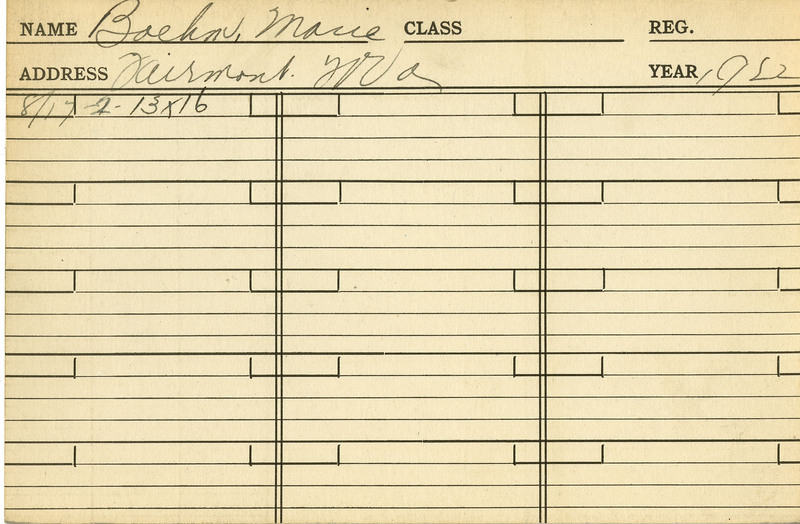 NAME Boehm, Marie CLASS REG.
ADDRESS Fairmont. W Va YEAR 1922
8/17 2-13x16